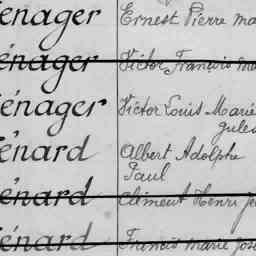 énager Ernest Pierre ma
énager Victor François ma
énager Victor Louis Marie
Jules
énard Albert Adolphe
Paul
énard Clément Henri Je
énard Francis Marie Jose